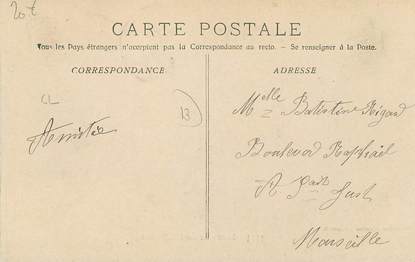 20 €
CARTE POSTALE
Tous les Pays étrangers n'acceptent pas la Correspondance au recto. – Se renseigner à la Poste.
CORRESPONDANCE
ADRESSE
CL
13
Amitiés
Melle Batistine Rigaud
Boulevard Raphaël
St Just
Marseille